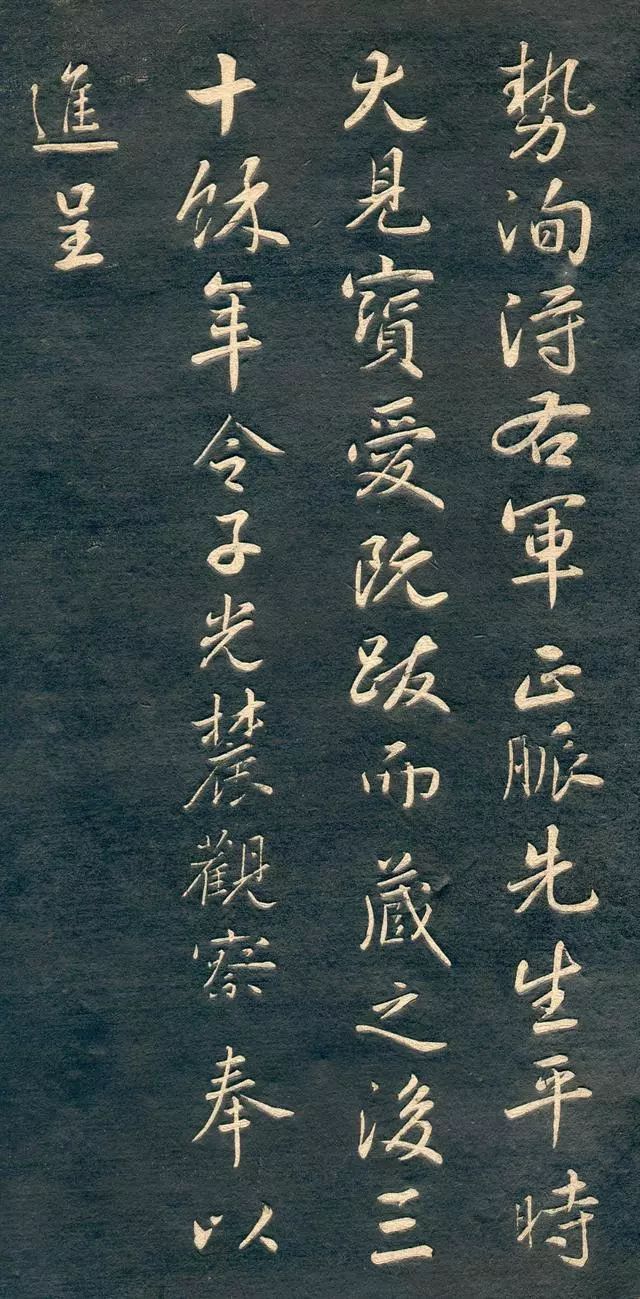 勢洵得右軍正脈先生平時
大見寶愛既跋而藏之後三
十餘年令子光麓觀察奉以
進呈